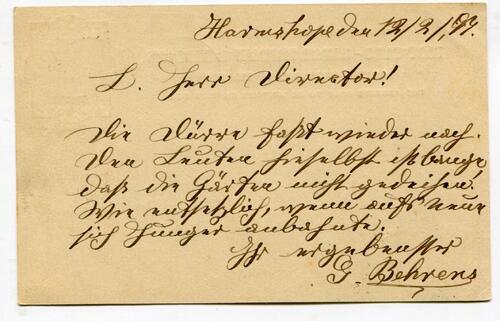 Harmshope den 12/2/97.
L. Herr Director!
Die Dürre faßt wieder nach.
Den Leuten hieselbst ist bange,
daß die Gärten nicht gedeihen.
Wie entsetzlich, wenn aufs neue
sich Hunger anbahnte.
Ihr ergebenster
G. Behrens